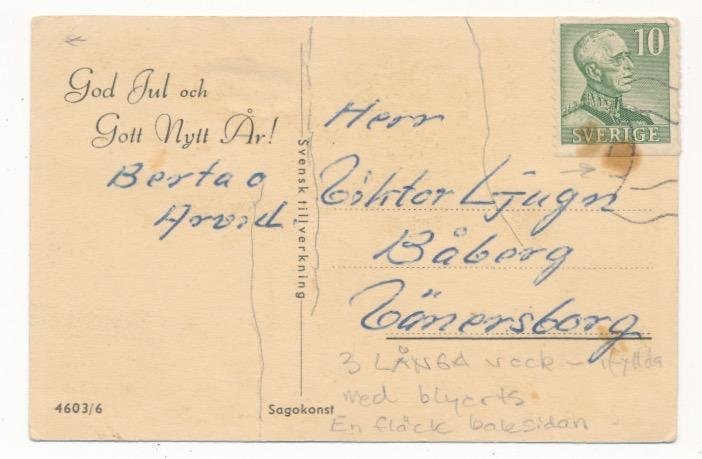 God Jul och
Gott Nytt År!
Berta o
Arvid.
Svensk tillverkning
10
SVERIGE
Herr
Viktor Ljugn
Båberg
Vänersborg
3 LÅNGA veck - ifyllda
med blyerts
En fläck baksidan
4603/6
Sagokonst